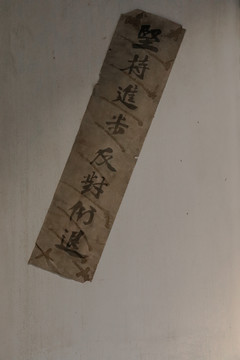 堅持進步反對倒退